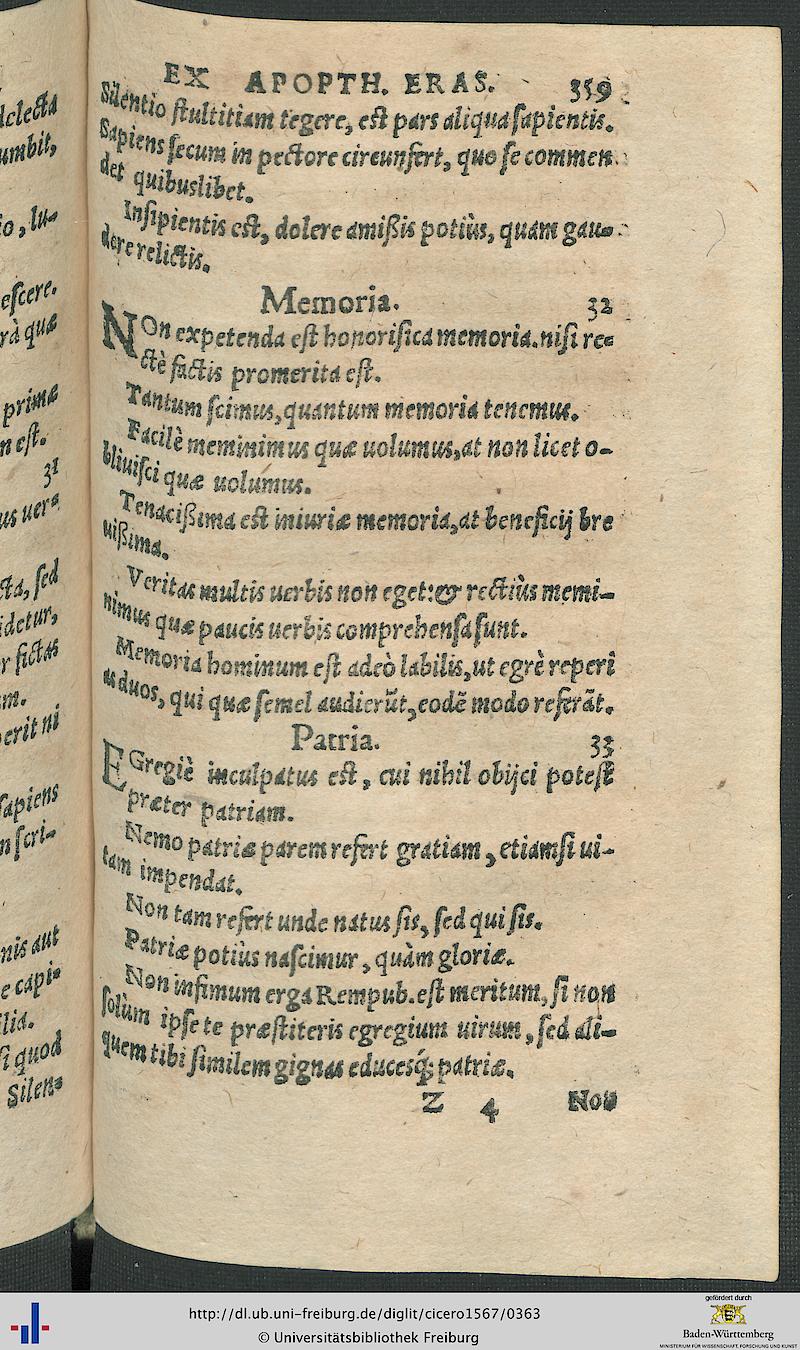 delecta
umbit,
io, lu-
escere.
rà quæ
primæ
n est.
31
us uer=
cta, sed
idetur,
r fictas
m.
erit ni
sapiens
n scri-
nis aut
e capi=
lia.
si quod
Silen=
EX APOPTH. ERAS. 359
Silentio stultitiam tegere, est pars aliqua sapientis.
Sapiens secum in pectore circunfert, quo se commen
det quibuslibet.
Insipientis est, dolere amißis potiùs, quam gau=
dere relictis.
Memoria. 32
NOn expetenda est honorifica memoria. nisi re=
ctè factis promerita est.
Tantum scimus, quantum memoria tenemus.
Facilè meminimus quæ uolumus, at non licet o-
bliuisci quæ uolumus.
Tenacißima est iniuriæ memoria, at beneficij bre
uißima.
Veritas multis uerbis non eget: & rectiùs memi-
nimus quæ paucis uerbis comprehensa sunt.
Memoria hominum est adeò labilis, ut egrè reperi
as duos, qui quæ semel audierūt, eodē modo referāt.
Patria. 33
EGregiè inculpatus est, cui nihil obijci potest
præter patriam.
Nemo patriæ parem refert gratiam, etiamsi ui-
tam impendat.
Non tam refert unde natus sis, sed qui sis.
Patriæ potiùs nascimur, quàm gloriæ.
Non infimum erga Rempub. est meritum, si non
solùm ipse te præstiteris egregium uirum, sed ali-
quem tibi similem gignas educesq́; patriæ.
Z 4 Non
http://dl.ub.uni-freiburg.de/diglit/cicero1567/0363
© Universitätsbibliothek Freiburg
gefördert durch
Baden-Württemberg
MINISTERIUM FÜR WISSENSCHAFT, FORSCHUNG UND KUNST